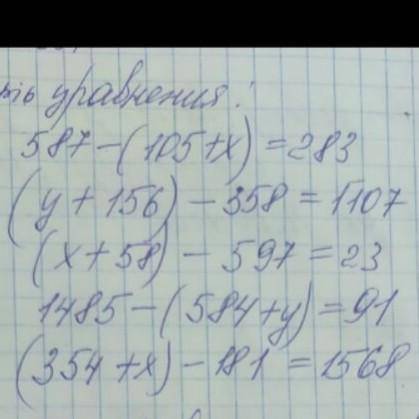 уравнения:
587-(105+х)=283
(у+156)-358=1107
(х+58)-597=23
1485-(584+у)=91
(354+х)-181=1568